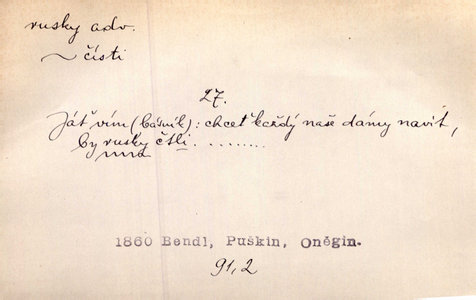 rusky adv.
~ čísti
27.
Játˇ vím (básník): chcetˇ každý naše dámy navit,
by rusky čtli .........
1860 Bendl, Puškin, Oněgin.
91,2